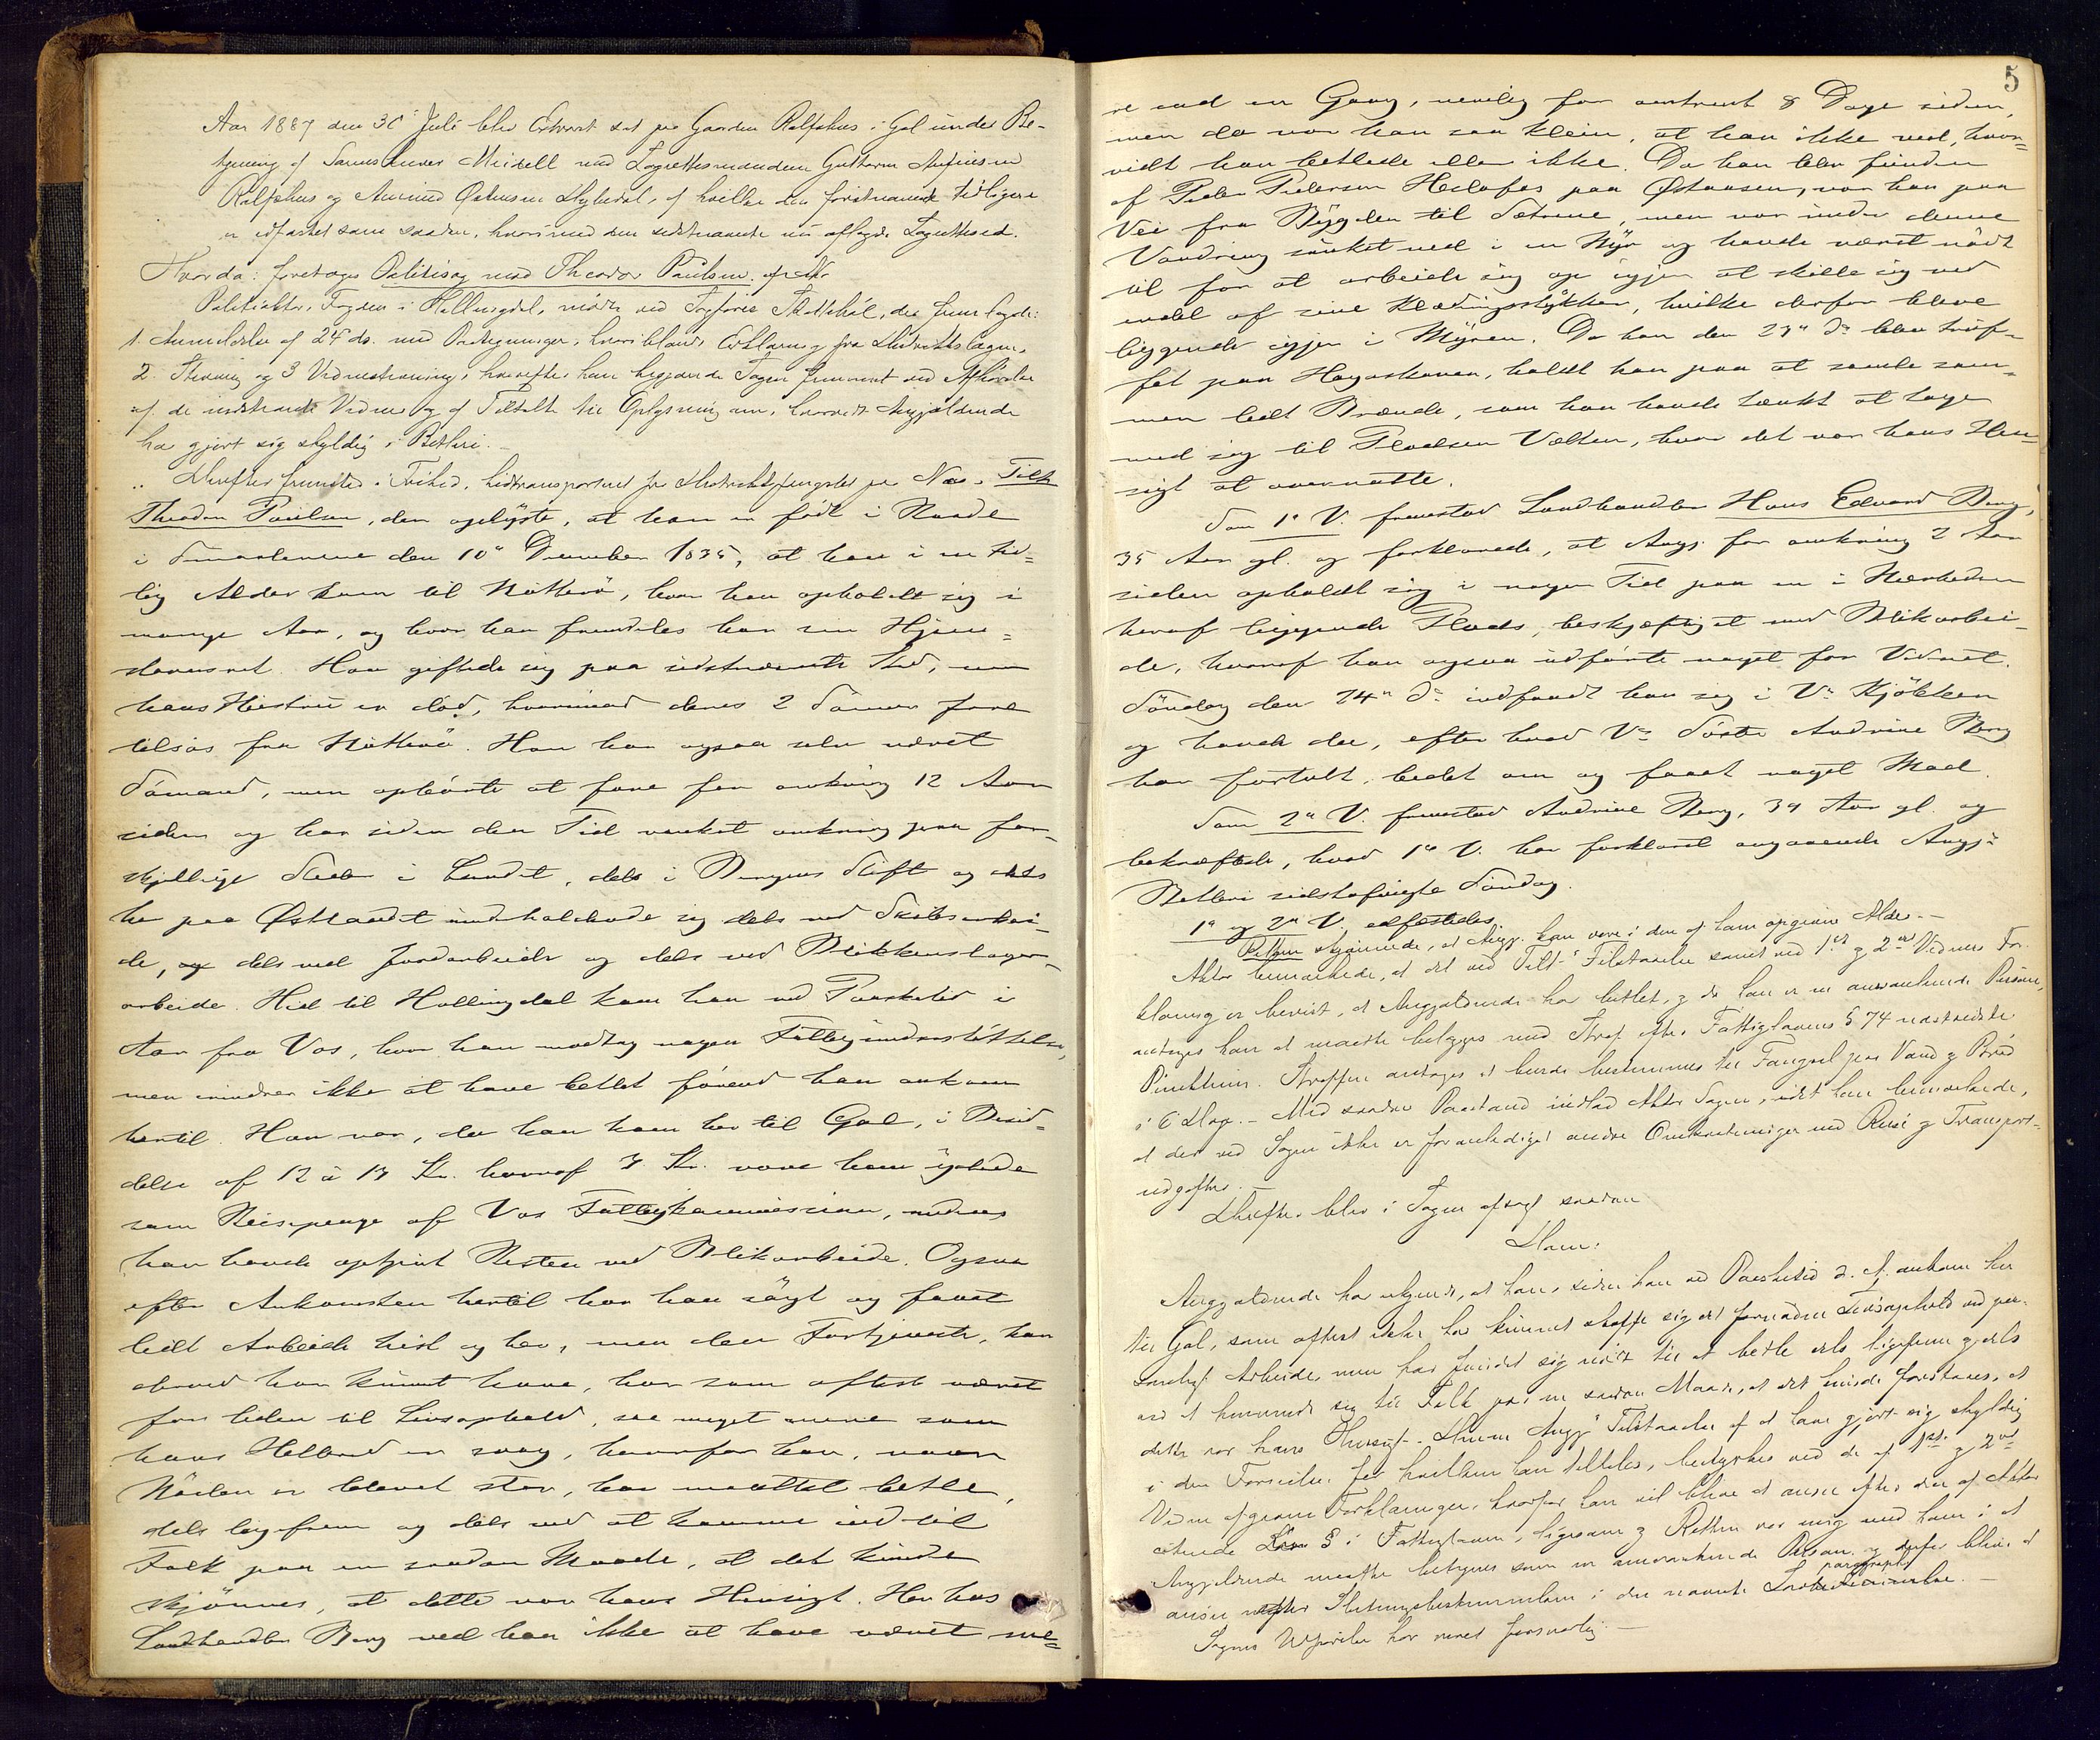 Aar 1887 den 30te Juli blev Extraret sat paa Gaarden Rolfshus i Gol under Be-
tjening af Sorenskriver Meidell med Lagrettesmændene Guttorm Arfinsen
Rolfshus og Amund Østensen, af hvilke den førstnævnte tidligere
er edfæstet som saadan, hvorimod den sidstnævnte nu aflagde Lagretteed.
Hvorda: foretoges Politisag mod Theodor Paulsen.
Politiaktor, Fogden i Hallingdal, mødte ved, der fremlagde:
1. Anmeldelse af 24de ds. med Paategninger, hvoriblandt Erklæring fra Distriktslægen,
2. Stevning og 3 Vidnestevninger, hvorefter han begjærede Sagen fremmet ved Afhørelse
af de indstevnte Vidner og af Tiltalte til Oplysning om, hvorvidt Angjældende
har gjort sig skyldig i Betleri.
Derefter fremstod i Frihed, hidtransporteret fra Distriktsfængslet paa Næs, Tilt.
Theodor Paulsen, der oplyste, at han er født i Raade
i Smaalenene den 10de December 1835, at han i en tid=
lig Alder kom til Nøtterö, hvor han opholdt sig i
mange Aar, og hvor han fremdeles har sin Hjem=
stavnsret. Han giftede sig paa sidstnævnte Sted, men
hans Hustru er død, hvorimod deres 2 Sönner fare
tilsös fra Nötterö. Han har ogsaa selv været
Sömand, men ophörte at fare for omkring 12 Aar
siden og har siden den Tid vanket omkring paa for-
skjellige Steder i Landet, dels i Bergens Stift og dels
her paa Østlandet underholdende sig dels ved Skibsarbei-
de, og dels ved Jordarbeide og dels ved Blikkenslager-
arbeide. Hid til Hallingdal kom han ved Paasketid i
Aar fra Vos, hvor han modtog nogen Fattigunderstöttelse,
men erindrer ikke at have betlet förend han ankom
hertil. Han var, da han kom her til Gol, i Besid-
delse af 12 à 13 Kr. hvoraf 3 Kr. vare ham ydede
som Reisepenge af Vos Fattigkommission, medens
han havde optjent Resten ved Blikarbeide. Ogsaa
efter Ankomsten hertil har han sögt og faaet
lidt Arbeide hist og her, men den Fortjeneste, han
derved har kunnet have, har som oftest været
for liden til Livsophold, saa meget mere som
hans Helbred er svag, hvorfor han, naar
Nöden er blevet stor, har maattet betle,
dels ligefrem og dels ved at komme ind til
Folk paa en saadan Maade, at det kunde
skjönnes, at dette var hans Hensigt. Her hos
Landhandler Berg ved han ikke at have været me=
re end en Gang, nemlig for omtrent 8 Dage siden,
men da var han saa klein, at han ikke ved, hvor=
vidt han betlede eller ikke. Da han blev funden
af Peder Pedersen Heslafos paa Østaasen, var han paa
Vei fra Bygden til Sætrene, men var under denne
Vandring sunket ned i en Myr og havde været nödt
til for at arbeide sig op igjen at skille sig ved
endel af sine Klædningsstykker, hvilke derfor bleve
liggende igjen i Myren. Da han den 23de ds blev truf-
fet paa Hagaskoven, holdt han paa at samle sam-
men lidt Brænde, som han havde tænkt at tage
med sig til Pladsen Vælten, hvor det var hans Hen-
sigt at overnatte.
Som 1ste V. fremstod Landhandler Hans Edvard Berg,
35 Aar gl. og forklarede, at Angj. for omkring 2 Aar
siden opholdt sig i nogen Tid paa en i Nærheden
heraf liggende Plads, beskjæftiget med Blikarbei-
de, hvoraf han ogsaa udförte noget for Vidnet.
Söndag den 24de ds indfandt han sig i V.s Kjökken
og havde der, efter hvad V.s Söster Andrine Berg
har fortalt, bedet om og faaet noget Mad.
Som 2det V. fremstod Andrine Berg, 39 Aar gl. og
bekræftede, hvad 1ste V. har forklaret angaaende Angj.s
Betleri sidstafvigte Söndag.
1ste og 2det V. edfæstedes.
Retten skjönnede, at Angj. kan være i den af ham opgivne Alder.
Aktor bemærkede, at det ved Tilt.s Tilstaaelse samt ved 1ste og 2det Vidnes For-
klaring er bevist, at Angjældende har betlet, og da han er en omvankende Person,
antages han at maatte belægges med Straf efter Fattiglovens § 74 næstsidste
Punktum. Straffen antages at burde bestemmes til Fængsel paa Vand og Bröd
i 6 Dage. Med saadan Paastand indlod Aktor Sagen, idet han bemærkede,
at der ved Sagen ikke er foranlediget andre Omkostninger end Reise og Transport-
udgifter.
Derefter blev i Sagen afsagt saadan
Dom:
Angjældende har erkjendt, at han, siden han ved Paasketid d. A. ankom her
til Gol, som oftest ikke har kunnet skaffe sig det fornödne Livsophold ved per-
sonligt Arbeide, men har fundet sig nödt til at betle dels ligefrem og dels
ved at henvende sig til Folk paa en saadan Maade, at det kunde forstaaes, at
dette var hans Hensigt. Denne Angj.s Tilstaaelse af at have gjort sig skyldig
i den Forseelse, for hvilken han tiltales, bestyrkes ved de af 1ste og 2det
Vidne afgivne Forklaringer, hvorfor han vil blive at anse efter den af Aktor
citerede § i Fattigloven, ligesom og Retten var enig med ham i at
Angjældende maatte betegnes som en omvankende Person og derfor blive at
anse efter Slutningsbestemmelsen i den nævnte Lovparagraph.
Sagens Udførelse har været forsvarlig.
5